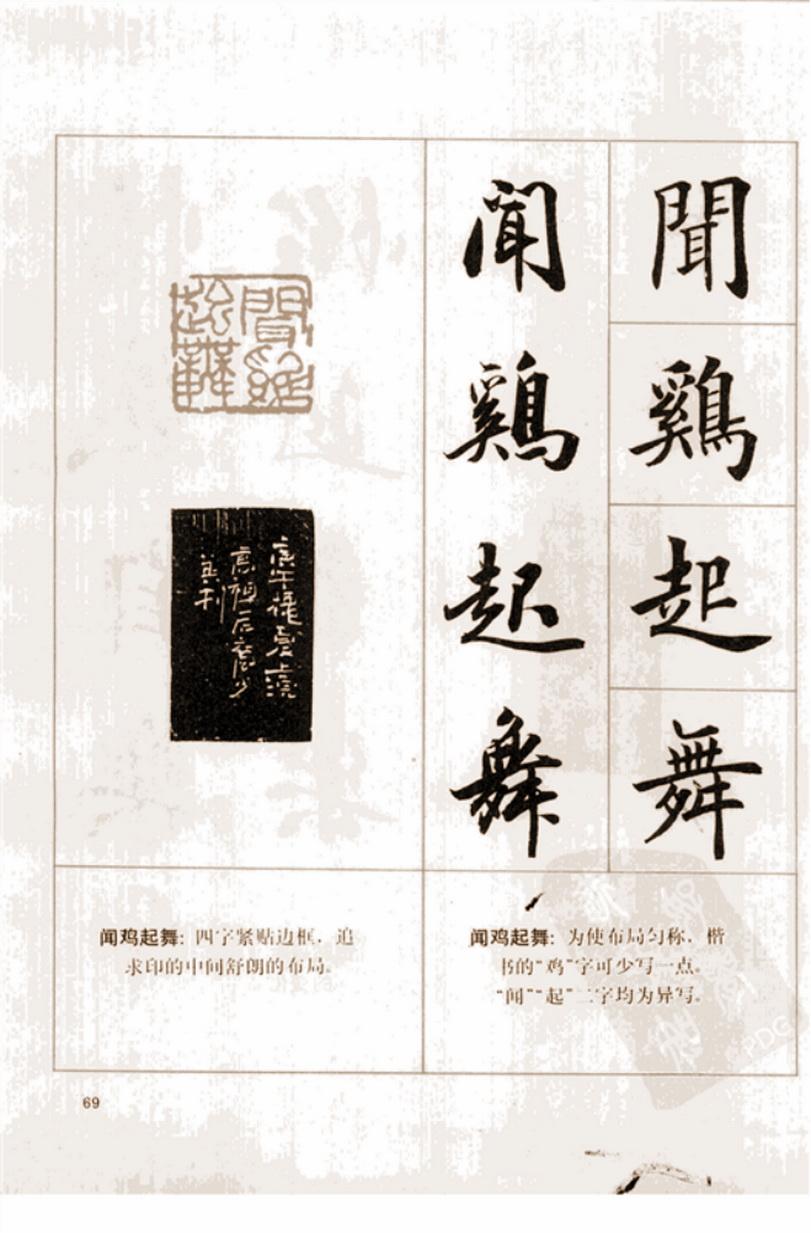 聞
鷄
起
舞
聞
鷄
起
舞
聞鷄
起舞
闻鸡起舞：四字紧贴边框，追
求印的中间舒朗的布局。
闻鸡起舞：为使布局匀称，楷
书的“鸡”字可少写一点。
“闻”“起”二字均为异写。
69
PDG